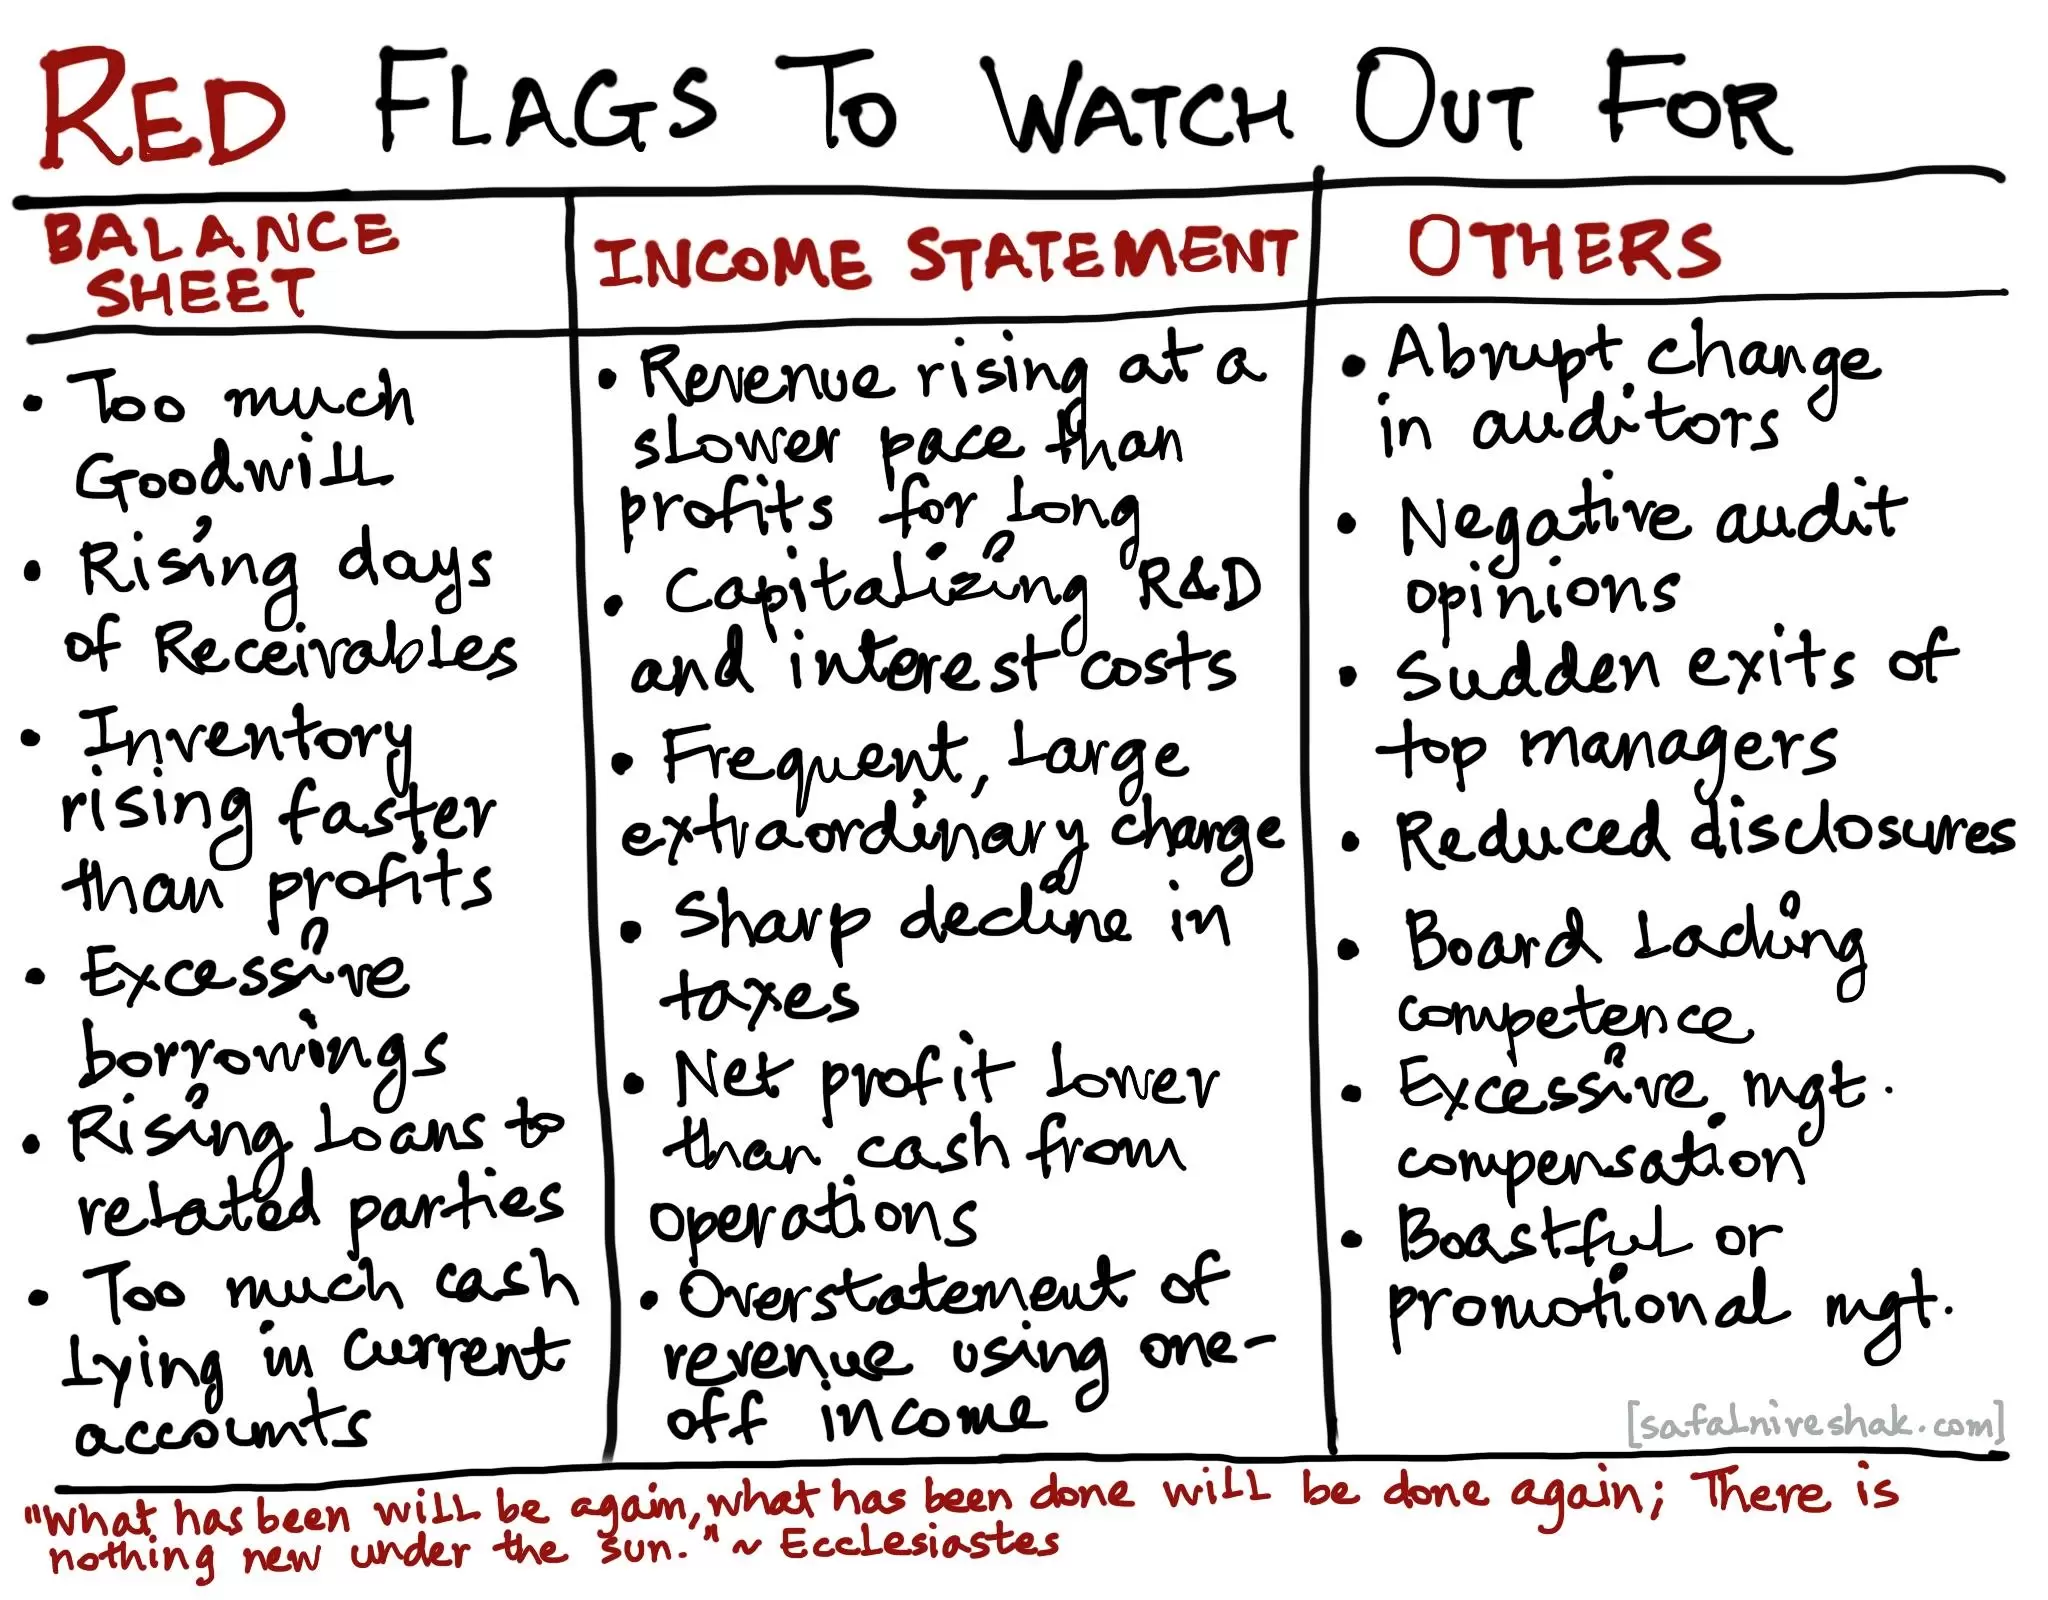 RED FLAGS TO WATCH OUT FOR
BALANCE
SHEET
• Too much
Goodwill
• Rising days
of Receivables
• Inventory
rising faster
than profits
• Excessive
borrowings
• Rising loans to
related parties
• Too much cash
lying in current
accounts
INCOME STATEMENT
• Revenue rising at a
slower pace than
profits for long
• Capitalizing R&D
and interest costs
• Frequent, large
extraordinary charge
• Sharp decline in
taxes
• Net profit lower
than cash from
operations
• Overstatement of
revenue using one-
off income
OTHERS
• Abrupt change
in auditors
• Negative audit
opinions
• Sudden exits of
top managers
• Reduced disclosures
• Board lacking
competence
• Excessive mgt.
compensation
• Boastful or
promotional mgt.
[safalniveshak.com]
"What has been will be again, what has been done will be done again; There is
nothing new under the sun." ~ Ecclesiastes